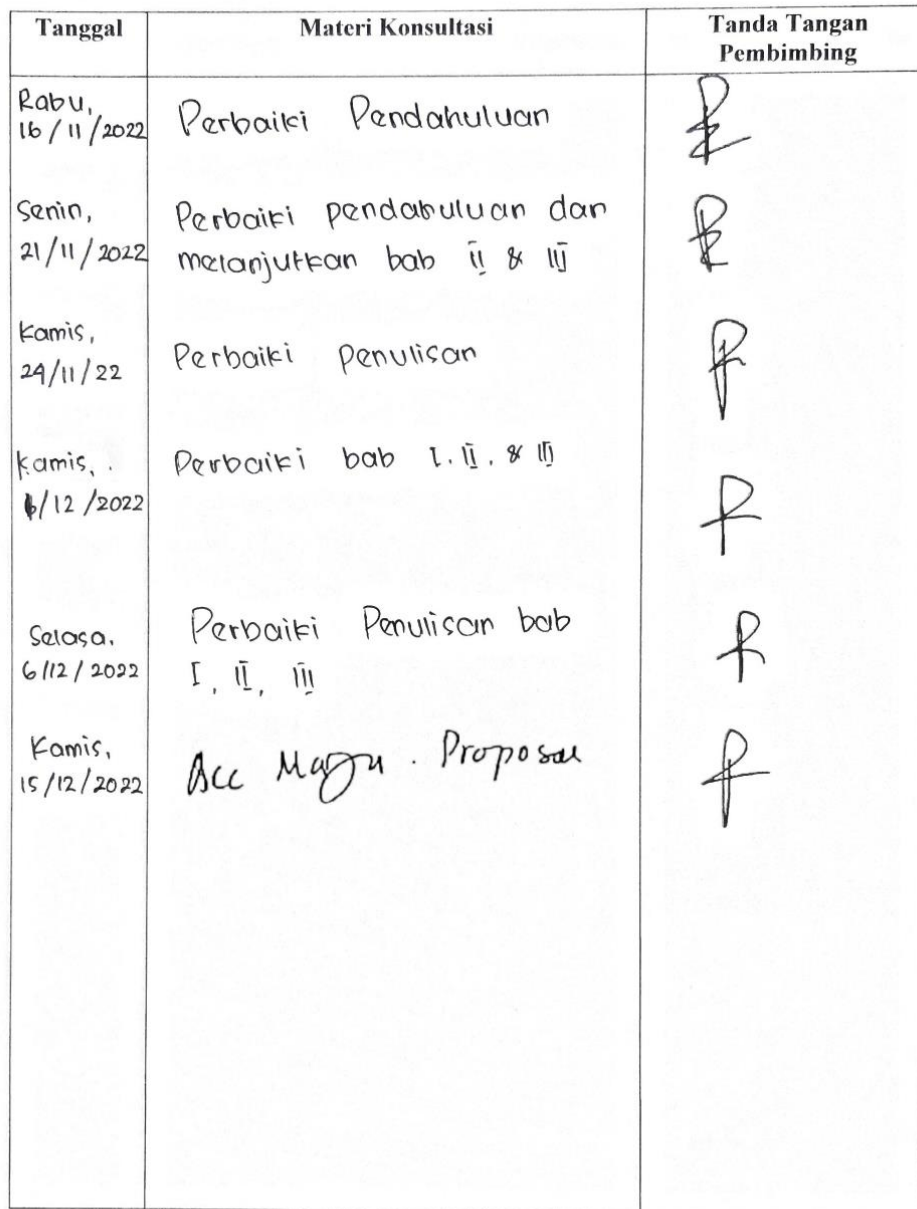 Tanggal Materi Konsultasi Tanda Tangan
Pembimbing
Rabu,
16/11/2022 Perbaiki Pendahuluan
Senin, Perbaiki pendahuluan dan
21/11/2022 melanjutkan bab II & III
Kamis,
24/11/22 Perbaiki Penulisan
Kamis, Perbaiki bab I. II. & III
1/12/2022
Selasa. Perbaiki Penulisan bab
6/12/2022 I, II, III
Kamis,
15/12/2022 Acc Maju. Proposal